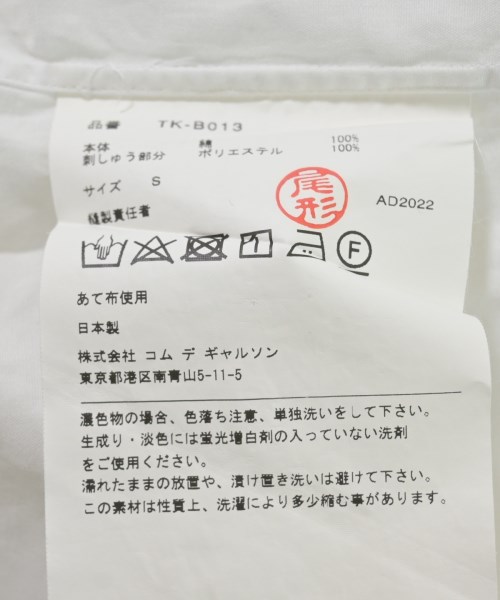 品番 TK-B013
本体 綿 100%
刺しゅう部分 ポリエステル 100%
サイズ S
尾形
AD2022
縫製責任者
F
あて布使用
日本製
株式会社 コム デ ギャルソン
東京都港区南青山5-11-5
濃色物の場合、色落ち注意、単独洗いをして下さい。
生成り・淡色には蛍光増白剤の入っていない洗剤
をご使用ください。
濡れたままの放置や、漬け置き洗いは避けて下さい。
この素材は性質上、洗濯により多少縮む事があります。